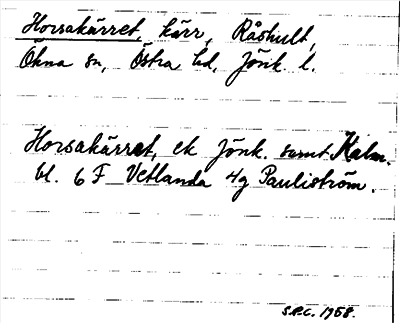 Horsakärret, kärr, Råshult,
Ökna sn, Östra hd, Jönk l.
Horsakärret, ek Jönk. samt Kalm.
bl. 6 F Vetlanda 4g Pauliström.
S.P.C. 1958.